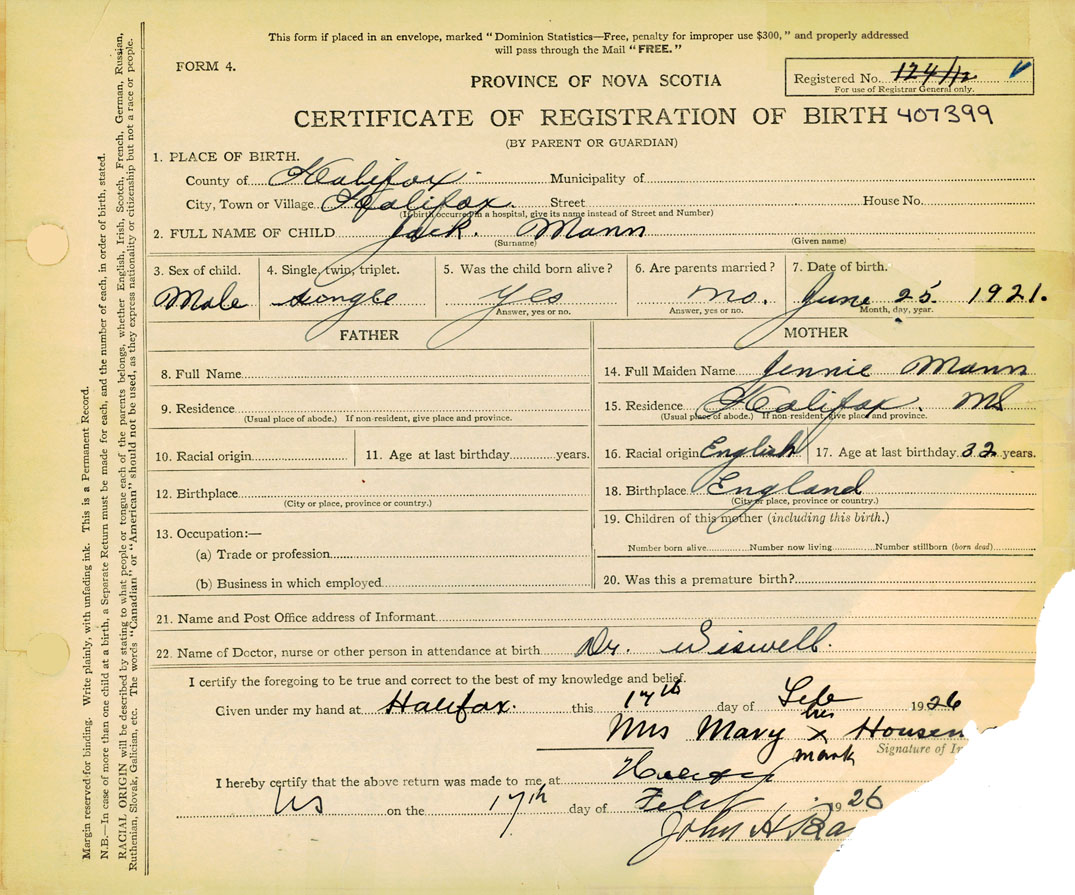 This form if placed in an envelope, marked "Dominion Statistics—Free, penalty for improper use $300," and properly addressed
will pass through the Mail "FREE."
FORM 4.
PROVINCE OF NOVA SCOTIA
Registered No. 124/12
For use of Registrar General only.
CERTIFICATE OF REGISTRATION OF BIRTH 407399
(BY PARENT OR GUARDIAN)
1. PLACE OF BIRTH.
County of Halifax. Municipality of
City, Town or Village Halifax. Street House No.
(If birth occurred in a hospital, give its name instead of Street and Number)
2. FULL NAME OF CHILD Jack. Mann
(Surname) (Given name)
3. Sex of child. 4. Single, twin, triplet. 5. Was the child born alive? 6. Are parents married? 7. Date of birth.
Male single yes no. June 25. 1921.
Answer, yes or no. Answer, yes or no. Month, day, year.
FATHER
8. Full Name
9. Residence
(Usual place of abode.) If non-resident, give place and province.
10. Racial origin 11. Age at last birthday years.
12. Birthplace
(City or place, province or country.)
13. Occupation:—
(a) Trade or profession
(b) Business in which employed
MOTHER
14. Full Maiden Name Jennie Mann
15. Residence Halifax. NS
(Usual place of abode.) If non-resident, give place and province.
16. Racial origin English 17. Age at last birthday 32 years.
18. Birthplace England
(City or place, province or country.)
19. Children of this mother (including this birth.)
Number born alive Number now living Number stillborn (born dead)
20. Was this a premature birth?
21. Name and Post Office address of Informant
22. Name of Doctor, nurse or other person in attendance at birth Dr. Wiswell.
I certify the foregoing to be true and correct to the best of my knowledge and belief.
Given under my hand at Halifax. this 17th day of Feb 1926
her
Mrs Mary x Housen
mark
Signature of In
I hereby certify that the above return was made to me at Halifax
NS on the 17th day of Feb 1926
John H Ba
Margin reserved for binding. Write plainly, with unfading ink. This is a Permanent Record.
N.B.—In case of more than one child at a birth, a Separate Return must be made for each, and the number of each, in order of birth, stated.
RACIAL ORIGIN will be described by stating to what people or tongue each of the parents belongs, whether English, Irish, Scotch, French, German, Russian,
Ruthenian, Slovak, Galician, etc. The words "Canadian" or "American" should not be used, as they express nationality or citizenship but not a race or people.